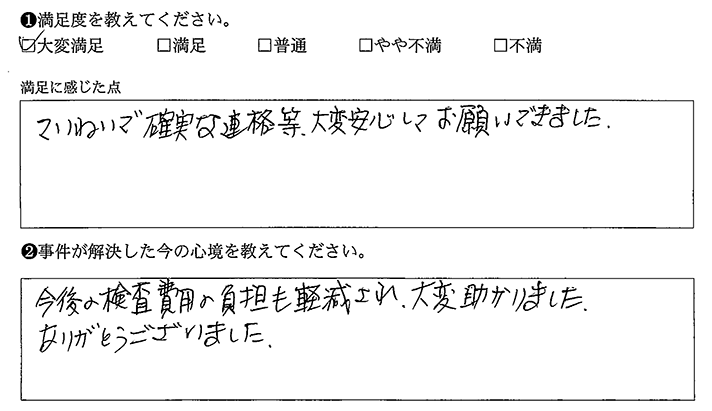 ❶満足度を教えてください。
☑大変満足 □満足 □普通 □やや不満 □不満
満足に感じた点
ていねいで確実な連絡等、大変安心してお願いできました.
❷事件が解決した今の心境を教えてください。
今後の検査費用の負担も軽減され、大変助かりました.
ありがとうございました.